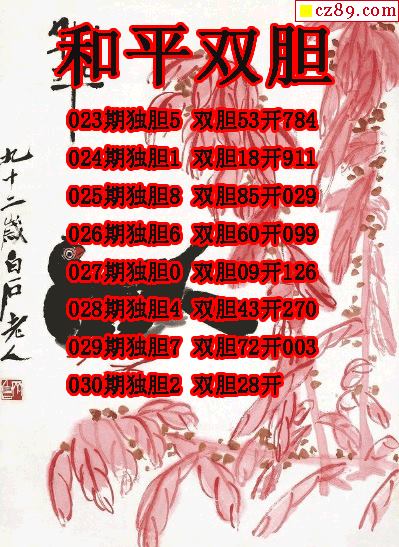 cz89.com
和平双胆
023期独胆5 双胆53开784
024期独胆1 双胆18开911
025期独胆8 双胆85开029
026期独胆6 双胆60开099
027期独胆0 双胆09开126
028期独胆4 双胆43开270
029期独胆7 双胆72开003
030期独胆2 双胆28开
九十二歲白石老人